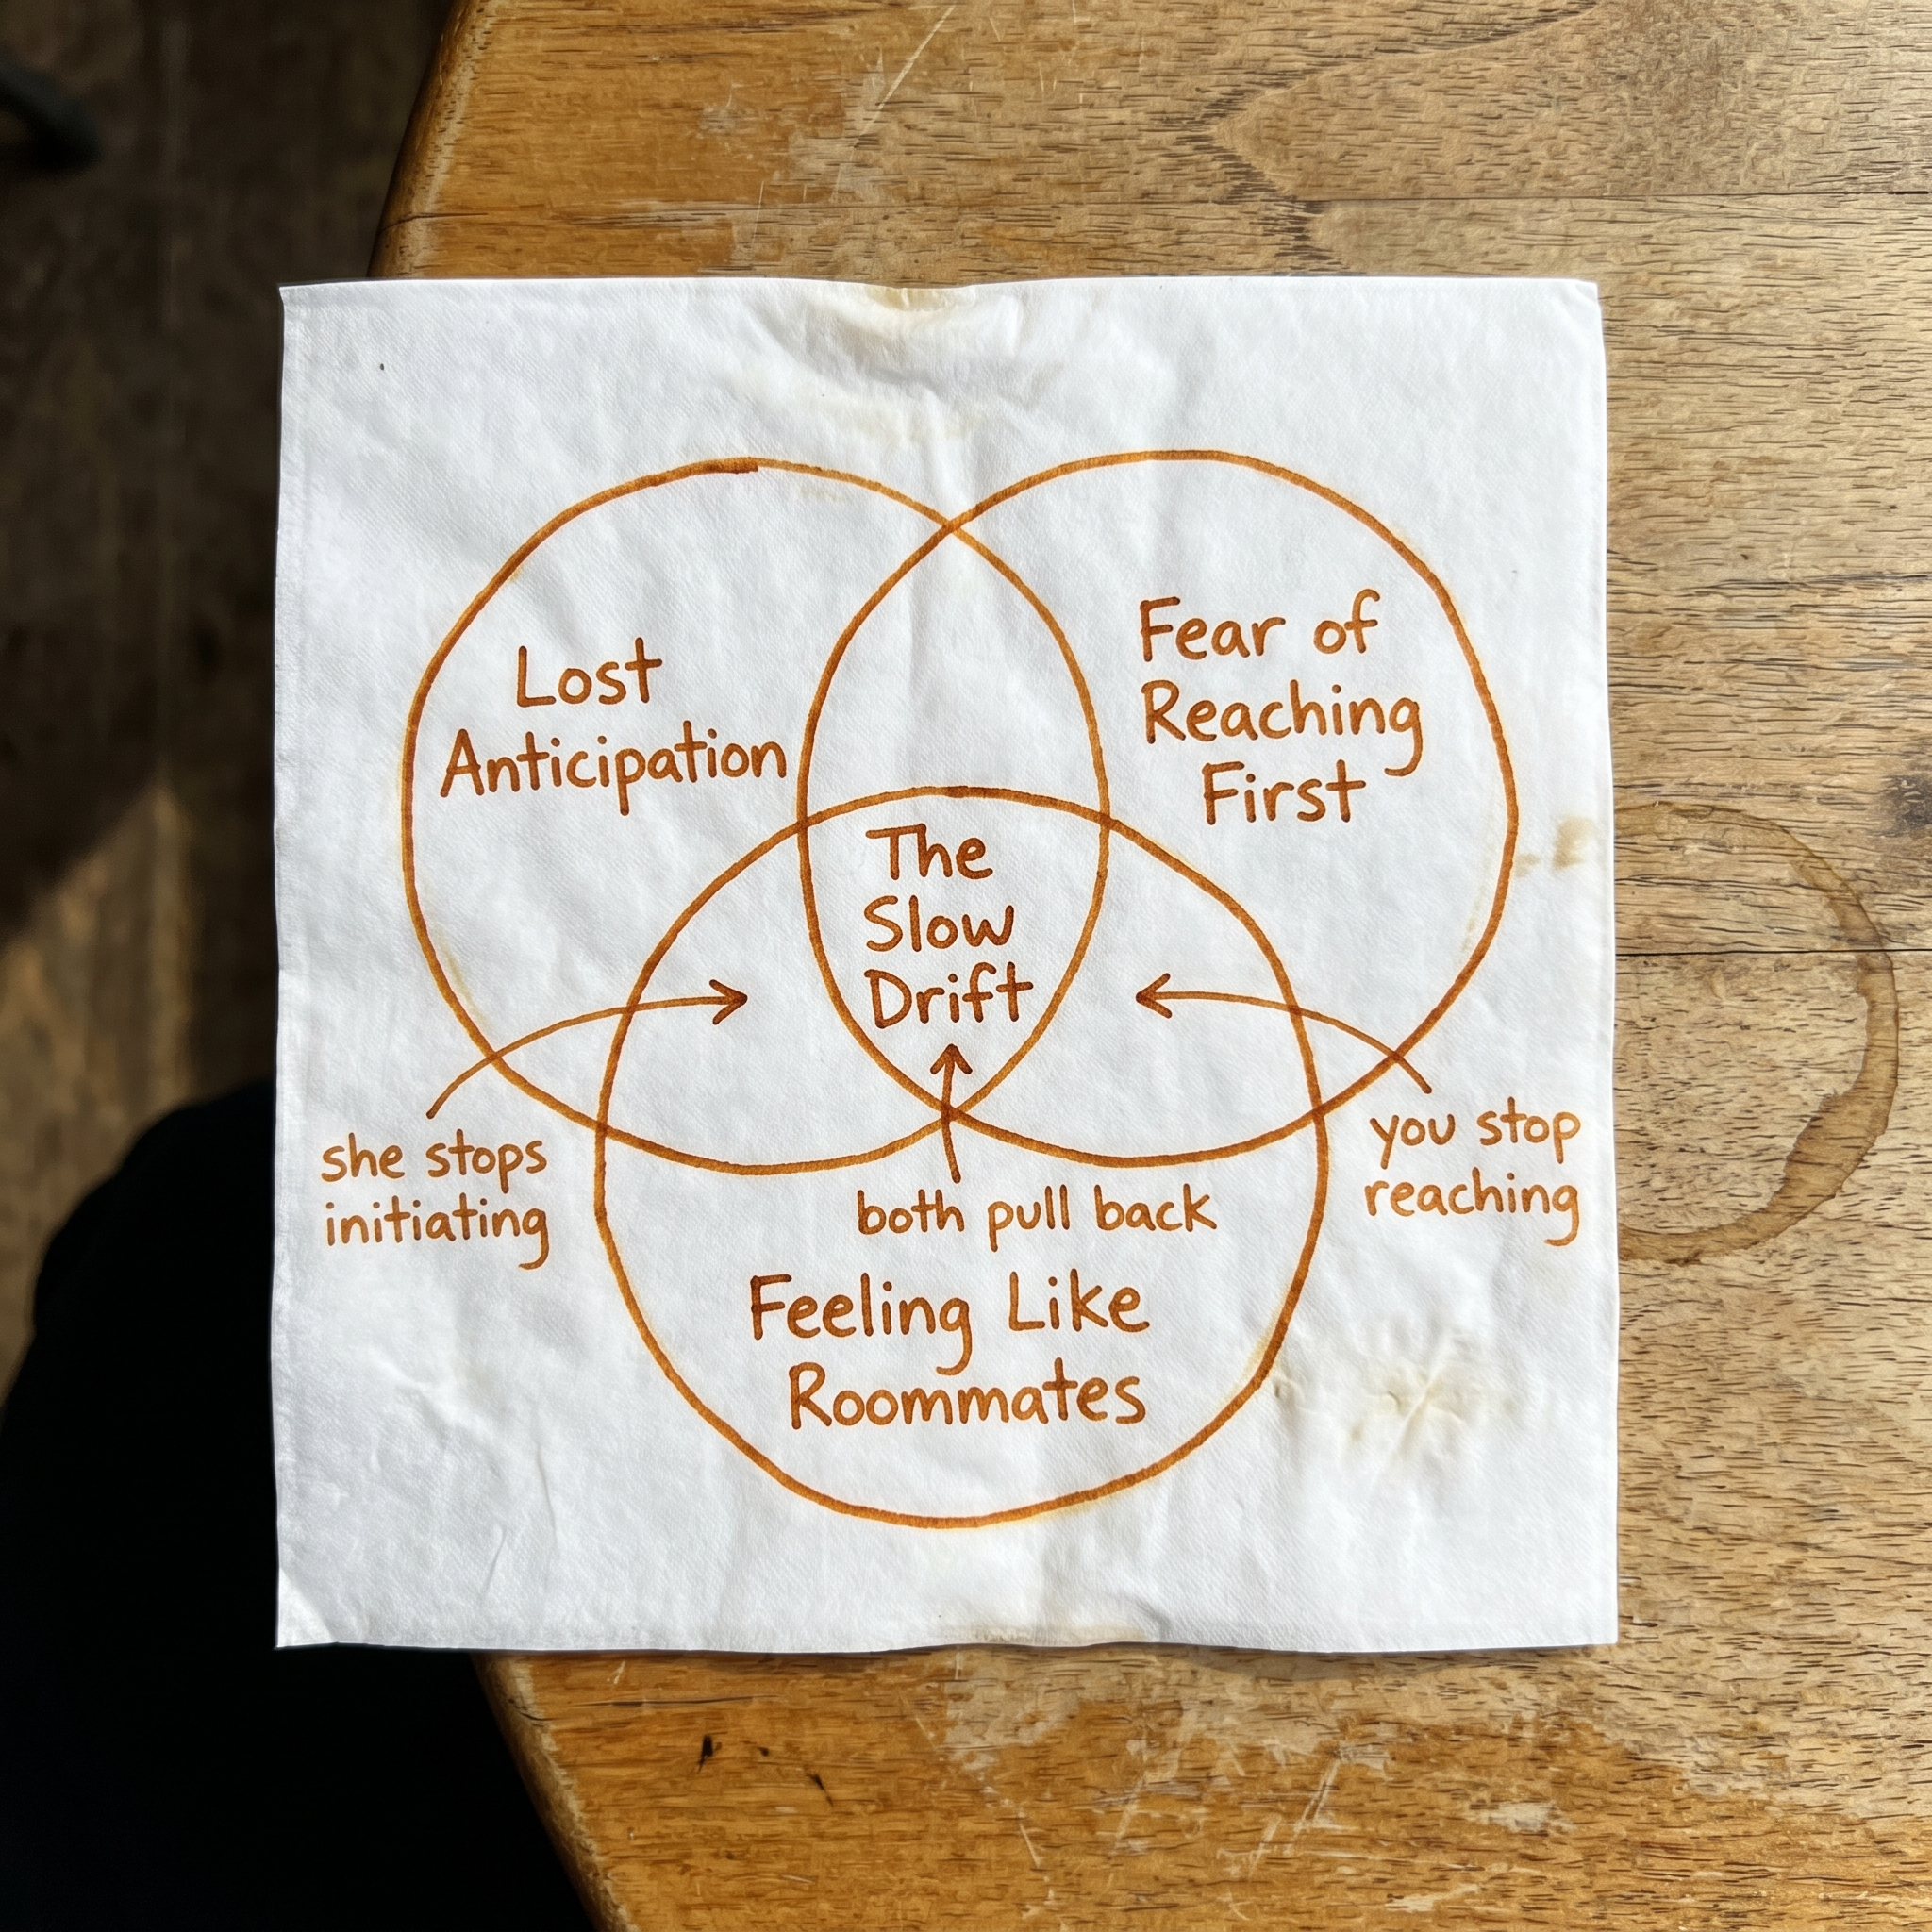 Lost
Anticipation
Fear of
Reaching
First
The
Slow
Drift
she stops
initiating
you stop
reaching
both pull back
Feeling Like
Roommates